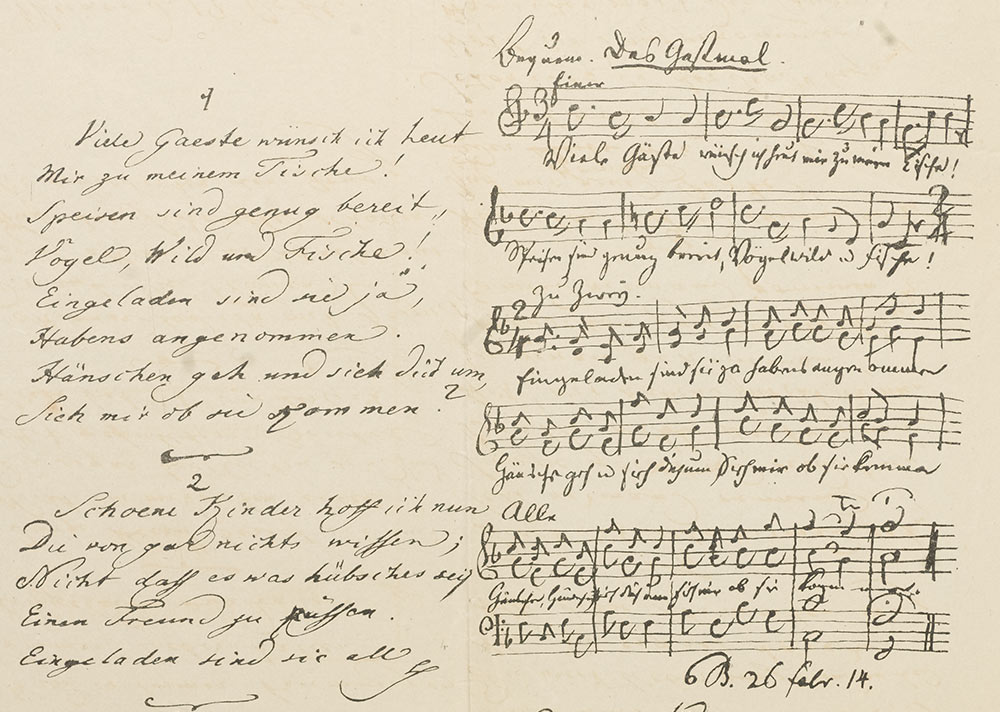 1
Viele Gaeste wünsch ich heut
Mir zu meinem Tische!
Speisen sind genug bereit,
Vögel, Wild und Fische!
Eingeladen sind sie ja,
Habens angenommen.
Hänschen geh und sieh dich um,
Sieh mir ob sie kommen?
2
Schoene Kinder hoff ich nun
Die von gar nichts wissen;
Nicht dass es was hübsches sey
Einen Freund zu küssen.
Eingeladen sind sie all
Bequem. Das Gastmal.
Einer
3
4
Viele Gäste wünsch ich heut mir zu meinen Tische!
Speisen sind genug bereit, Vögel wild u Fische!
2
4
Zu Zwey.
2
4
Eingeladen sind sie ja habens angenommen
Hänschen geh u sieh dich um Sieh mir ob sie kommen
Alle
Hänschen, Hänschen sieh dich um sieh mir ob sie
B. 26 febr. 14.